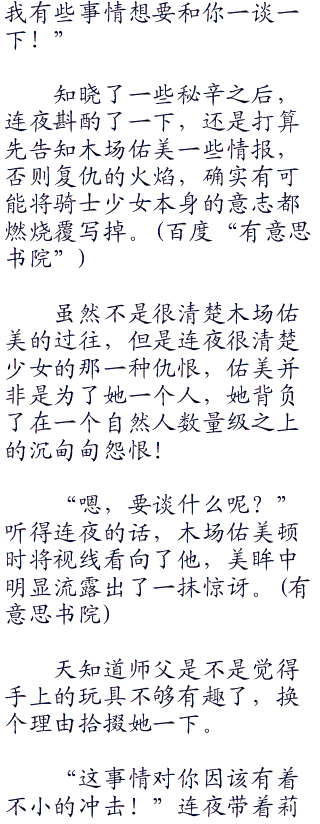 我有些事情想要和你一谈一
下！”
知晓了一些秘辛之后，
连夜斟酌了一下，还是打算
先告知木场佑美一些情报，
否则复仇的火焰，确实有可
能将骑士少女本身的意志都
燃烧覆写掉。(百度“有意思
书院”)
虽然不是很清楚木场佑
美的过往，但是连夜很清楚
少女的那一种仇恨，佑美并
非是为了她一个人，她背负
了在一个自然人数量级之上
的沉甸甸怨恨！
“嗯，要谈什么呢？”
听得连夜的话，木场佑美顿
时将视线看向了他，美眸中
明显流露出了一抹惊讶。(有
意思书院)
天知道师父是不是觉得
手上的玩具不够有趣了，换
个理由拾掇她一下。
“这事情对你因该有着
不小的冲击！”连夜带着莉